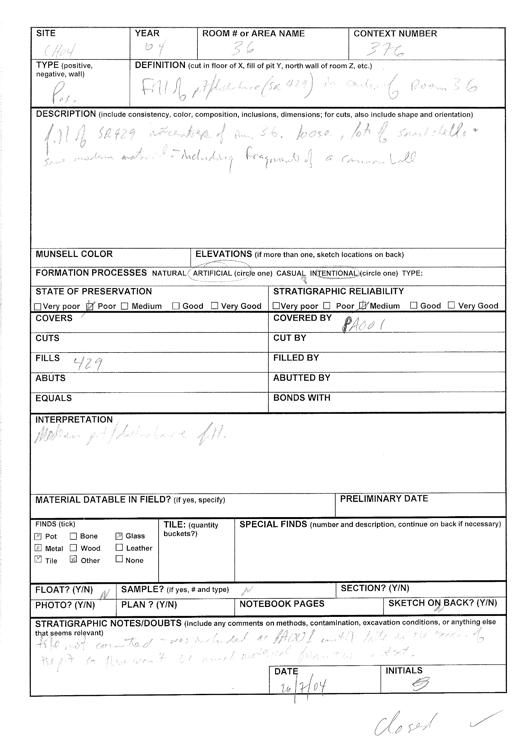 SITE YEAR ROOM # or AREA NAME CONTEXT NUMBER
CH04 04 36 376
TYPE (positive, negative, wall) DEFINITION (cut in floor of X, fill of pit Y, north wall of room Z, etc.)
Pos. Fill of pit/disturbance (SR 429) in center of Room 36
DESCRIPTION (include consistency, color, composition, inclusions, dimensions; for cuts, also include shape and orientation)
fill of SR429 at center of rm 36. loose, lots of snail shells +
some modern material - including fragment of a cannon ball
MUNSELL COLOR ELEVATIONS (if more than one, sketch locations on back)
FORMATION PROCESSES NATURAL ARTIFICIAL (circle one) CASUAL INTENTIONAL (circle one) TYPE:
STATE OF PRESERVATION STRATIGRAPHIC RELIABILITY
Very poor Poor Medium Good Very Good Very poor Poor Medium Good Very Good
COVERS COVERED BY
PA001
CUTS CUT BY
FILLS 429 FILLED BY
ABUTS ABUTTED BY
EQUALS BONDS WITH
INTERPRETATION
Modern pit/disturbance fill.
MATERIAL DATABLE IN FIELD? (if yes, specify) PRELIMINARY DATE
FINDS (tick) TILE: (quantity buckets?) SPECIAL FINDS (number and description, continue on back if necessary)
Pot Bone Glass
Metal Wood Leather
Tile Other None
FLOAT? (Y/N) N SAMPLE? (if yes, # and type) N SECTION? (Y/N)
PHOTO? (Y/N) PLAN ? (Y/N) NOTEBOOK PAGES SKETCH ON BACK? (Y/N) N
STRATIGRAPHIC NOTES/DOUBTS (include any comments on methods, contamination, excavation conditions, or anything else that seems relevant)
tile not counted - was included as PA001 until late in the
DATE INITIALS
26/7/04
Closed ✓